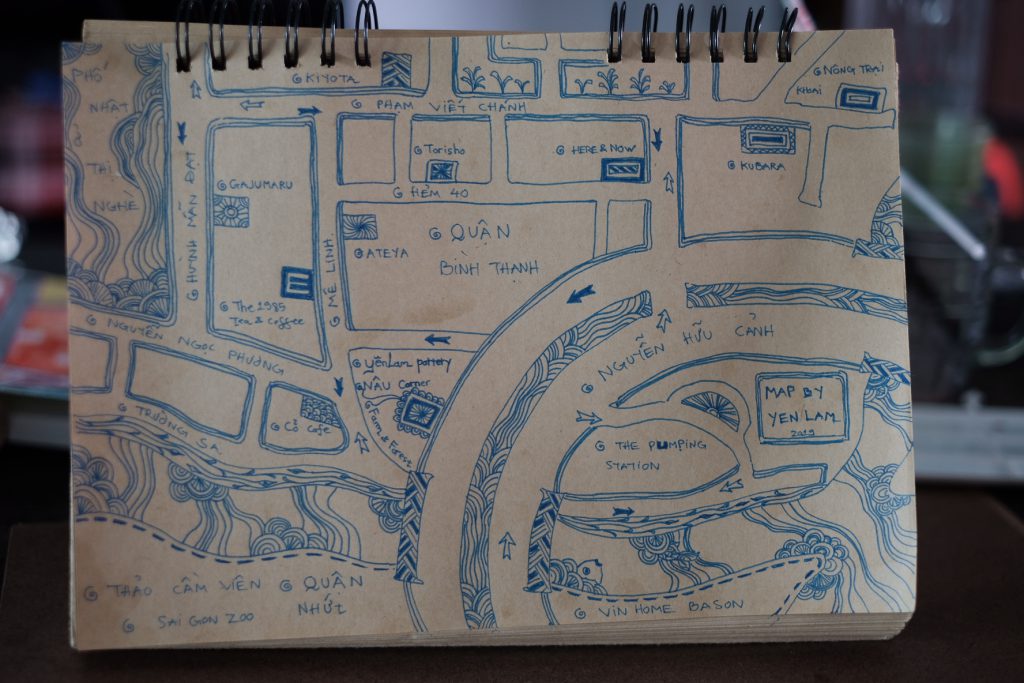 PHỐ
NHẬT
Ở
THỊ
NGHÈ
KIYOTA
PHẠM VIẾT CHÁNH
NÔNG TRẠI
KHOAI
Torisho
HERE & NOW
KUBARA
GAJUMARU
HẺM 40
HUỲNH MẪN ĐẠT
MÊ LINH
ATEYA
QUẬN
BÌNH THẠNH
The 1985
Tea & coffee
NGUYỄN NGỌC PHƯƠNG
NGUYỄN HỮU CẢNH
Yên Lam pottery
NÂU Corner
Farm & Forest
Cỏ Cafe
TRƯỜNG SA
MAP BY
YEN LAM
2019
THE PUMPING
STATION
THẢO CẦM VIÊN
SAI GON ZOO
QUẬN
NHỨT
VIN HOME BASON